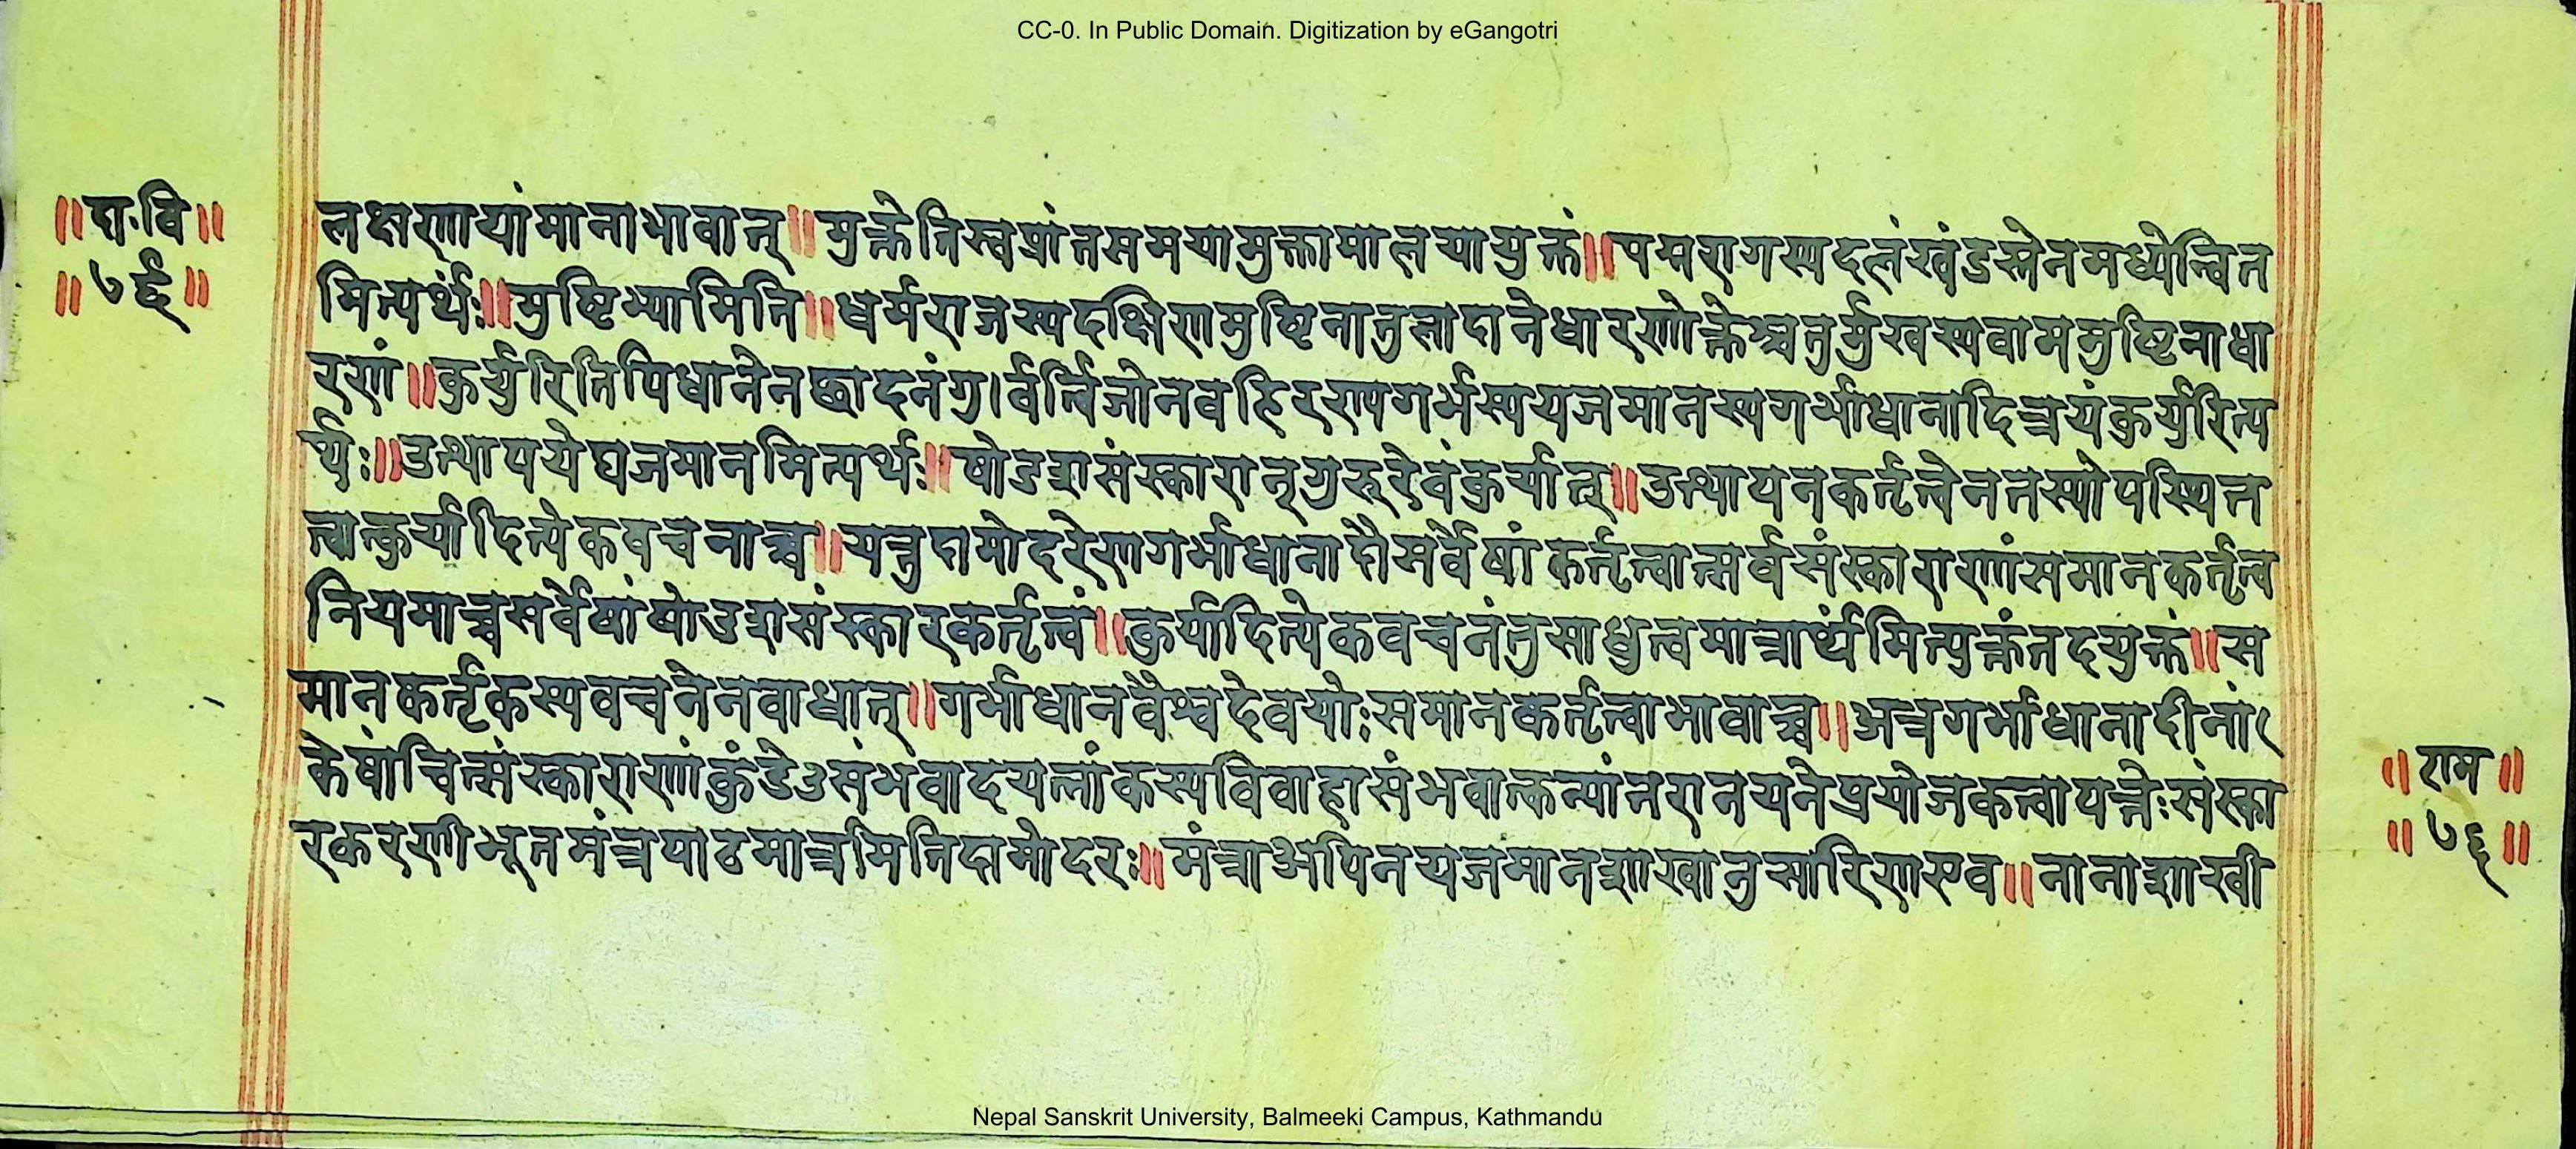 CC-0. In Public Domain. Digitization by eGangotri
॥दा.वि॥
॥७६॥
लक्षणायांमानाभावात्॥मुक्तेतिस्वप्रांतसमयामुक्तामालयायुक्तं॥पद्मरागस्यदलंखंडस्तेनमध्येन्वित
मित्यर्थः॥मुष्टिभ्यामिति॥धर्मराजस्यदक्षिणमुष्टिनातुलादानेधारणोक्तेश्चतुर्मुखस्यवाममुष्टिनाधा
रणं॥कुर्युरितिपिधानेनछादनंगु।र्वर्त्विजोनवहिरण्यगर्भस्ययजमानस्यगर्भाधानादित्रयंकुर्युरित्य
र्थः॥उत्थापयेद्यजमानमित्यर्थः॥षोडशसंस्कारान्गुरुरेवंकुर्यात्॥उत्थायनकर्तृत्वेनतस्योपस्थित
त्वात्कुर्यादित्येकवचनाच्च॥यत्तुदामोदरेणगर्भाधानादौसर्वेषांकर्तृत्वात्सर्वसंस्काराणांसमानकर्तृत्व
नियमाच्चसर्वेषांषोडशसंस्कारकर्तृत्वं॥कुर्यादित्येकवचनंतुसाधुत्वमात्रार्थमित्युक्तंतदयुक्तं॥स
मानकर्तृकस्यवचनेनवाधात्॥गर्भाधानवैश्वदेवयोःसमानकर्तृत्वाभावाच्च॥अत्रगर्भाधानादीनां
केषांचित्संस्काराणांकुंडेऽसंभवादयत्नांकस्यविवाहासंभवात्कन्यांनरानयनेप्रयोजकत्वायत्तेःसंस्का
रकरणीभूतमंत्रपाठमात्रमितिदामोदरः॥मंत्राअपिनयजमानशाखानुसारिणएव॥नानाशाखी
॥राम॥
॥७६॥
Nepal Sanskrit University, Balmeeki Campus, Kathmandu